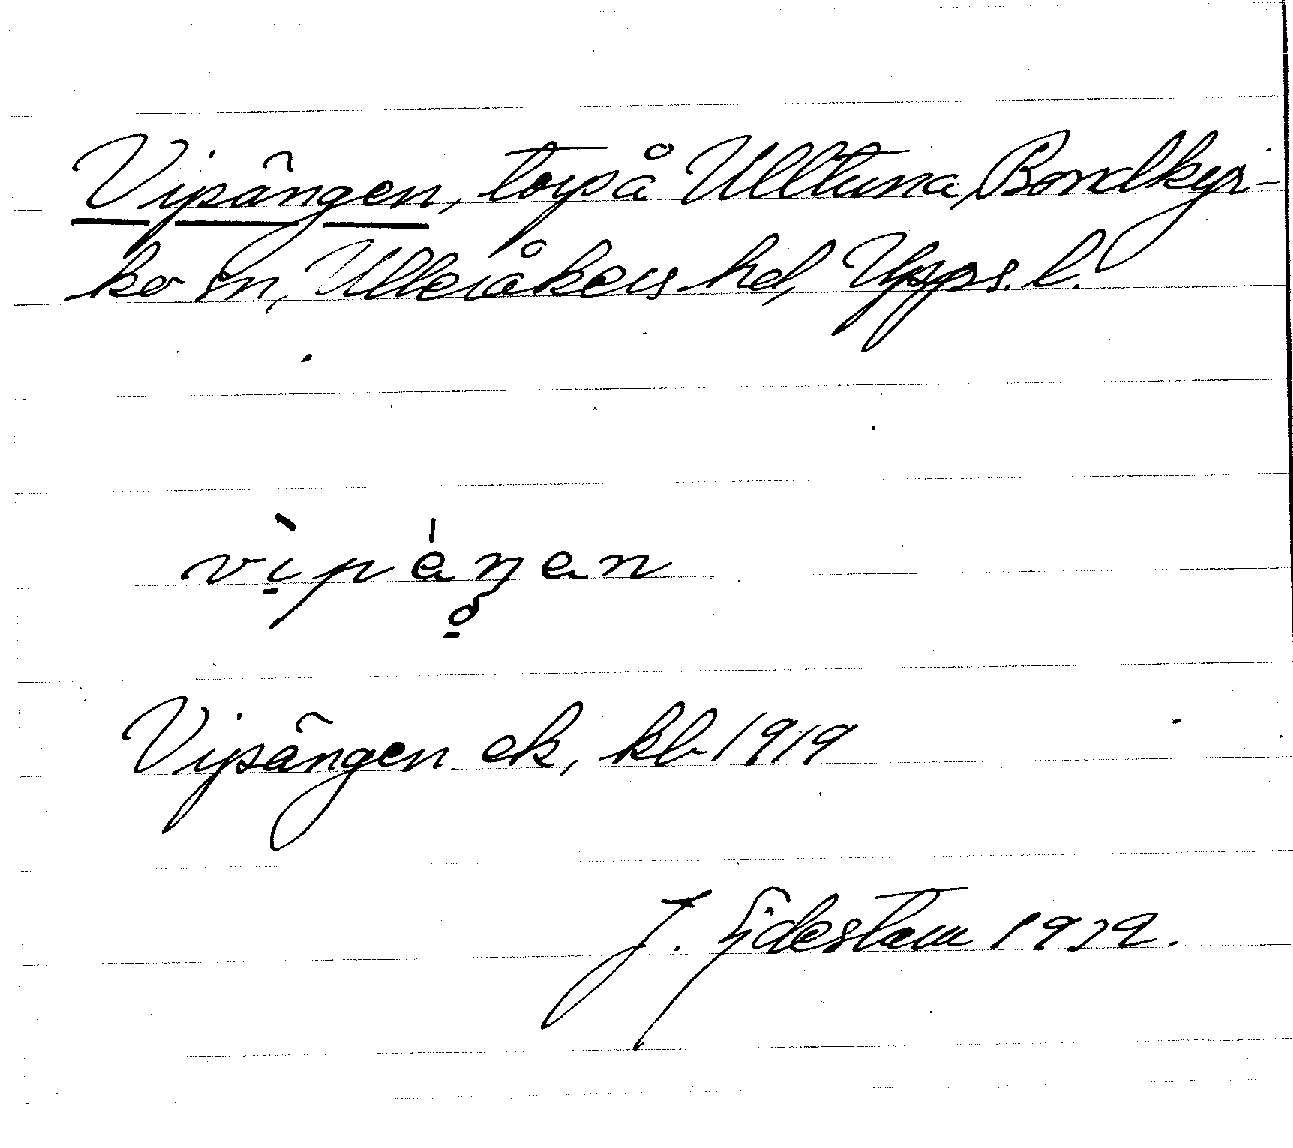 Vipängen, torp å Ulltuna, Bondkyr-
ko sn, Ulleråkers hd, Upps. l.
vìpáŋen
Vipängen ek, kb 1919
J. Sjdestam 1929.